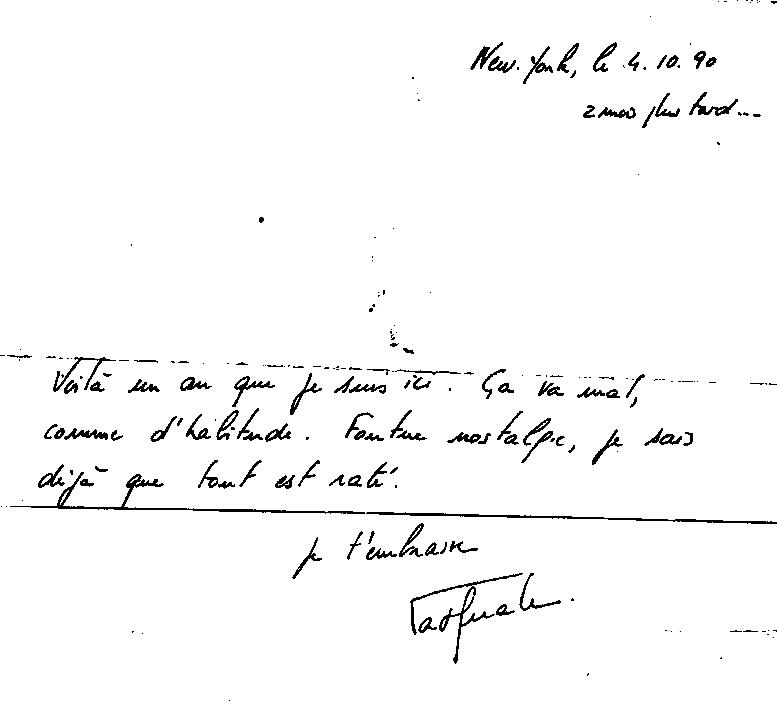 New-York, le 4.10.90
2 mois plus tard...
Voilà un an que je suis ici. Ça va mal,
comme d'habitude. Foutue nostalgie, je sais
déjà que tout est raté.
je t'embrasse
Pasquale.